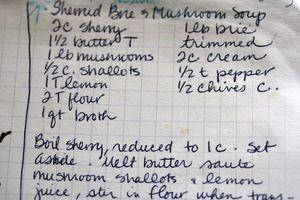 Sherried Brie & Mushroom Soup
2c sherry 1 lb brie
1½ butter T trimmed
1 lb mushrooms 2c cream
½ c. shallots ½ t pepper
1T lemon ½ chives c.
2T flour
1 qt broth
Boil sherry, reduced to 1 c. Set
aside. Melt butter saute
mushroom shallots & lemon
juice, stir in flour when trans-